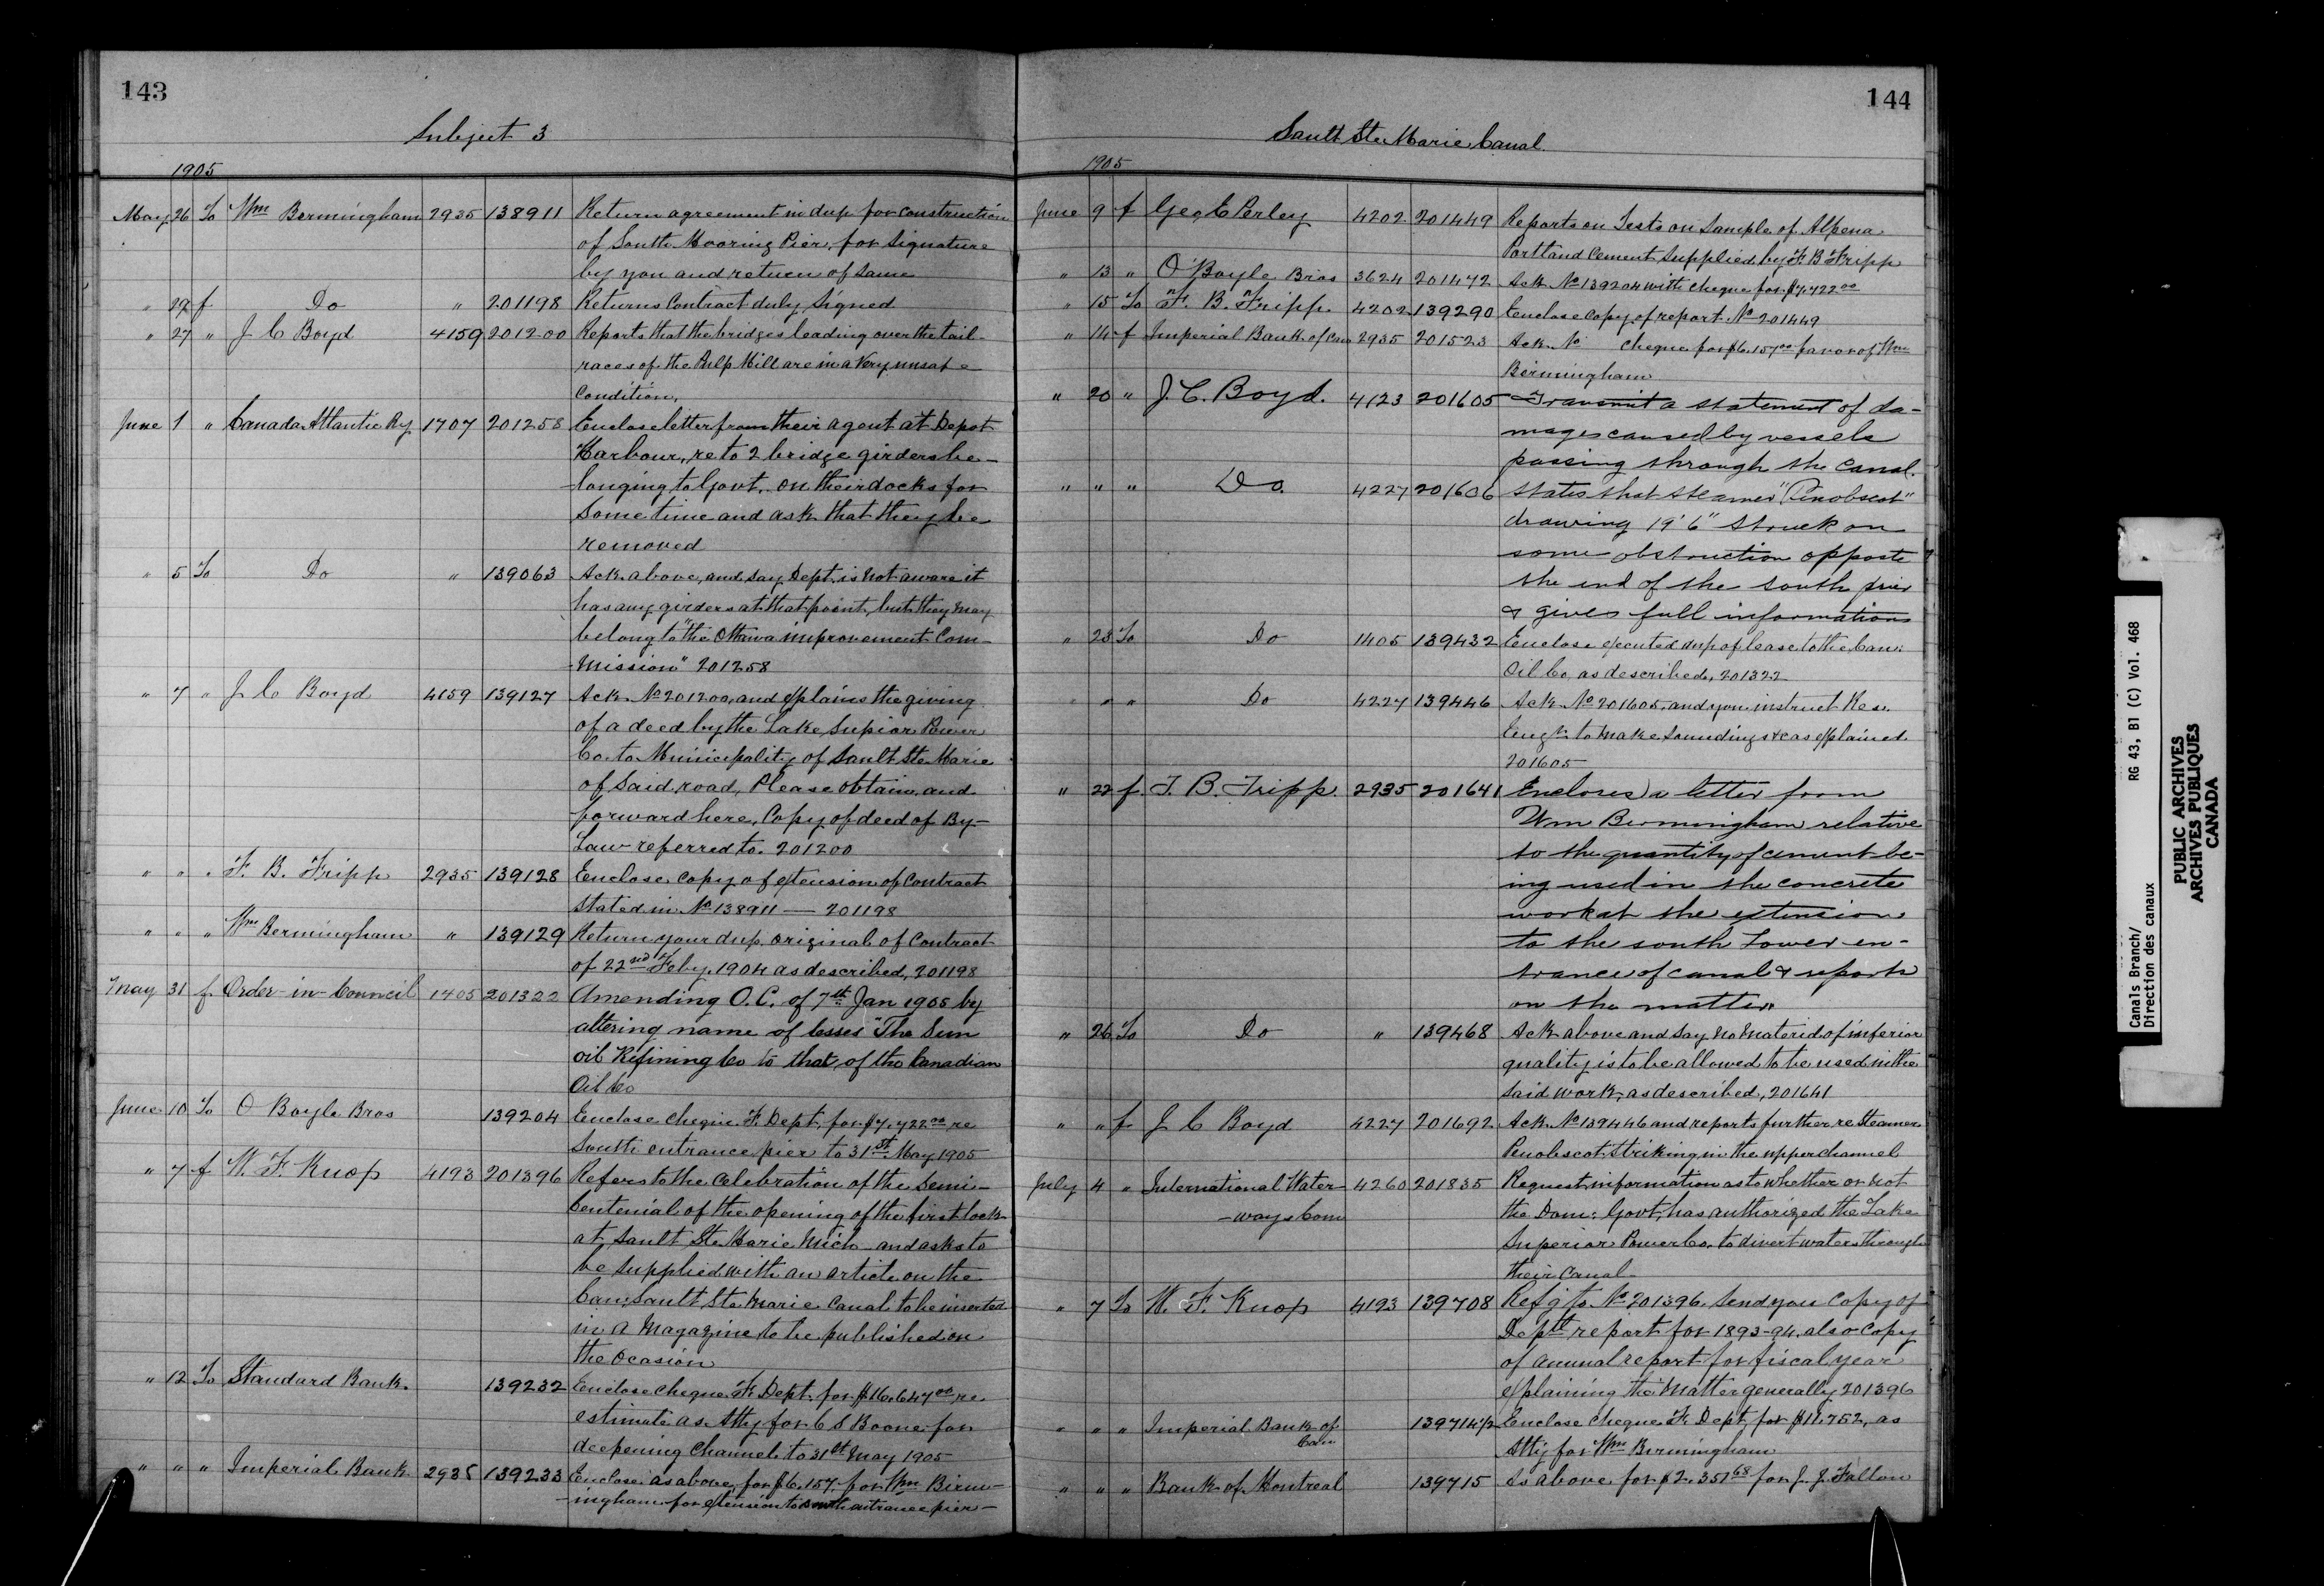 143
Subject 3
1905
May 26 To Wm Bermingham 2935 138911 Return agreement in dup for construction
of South Mooring Pier, for Signature
by you and return of same
" 29 f Do " 201198 Returns Contract duly Signed
" 27 " J C Boyd 4159 201200 Reports that the bridges leading over the tail
races of the Pulp Mill are in a Very unsafe
Condition.
June 1 " Canada Atlantic Ry 1707 201258 Enclose letter from their agent at Depot
Harbour, re to 2 bridge girders be-
longing to Govt, on their docks for
Some time and ask that they be
removed
" 5 To Do " 139063 Ack above, and say Dept. is not aware it
has any girders at that point, but they may
belong to "the Ottawa improvement Com-
mission" 201258
" 7 " J C Boyd 4159 139127 Ack No 201200, and explains the giving
of a deed by the Lake Supior Power
Co. to Municipality of Sault Ste Marie
of Said road, Please obtain and
forward here, Copy of deed of By-
Law referred to. 201200
" " " F. B. Fripp 2935 139128 Enclose Copy of extension of Contract
Stated in No 138911 — 201198
" " " Wm Bermingham " 139129 Return your dup original of Contract
of 22nd Feby. 1904 as described, 201198
May 31 f Order-in-Council 1405 201322 Amending O.C. of 7th Jan 1905 by
altering name of lesses "The Sun
Oil Refining Co to that of the Canadian
Oil Co
June 10 To O Boyle Bros 139204 Enclose Cheque F. Dept. for $7,722.00 re
South entrance pier to 31st May 1905
" 7 f W. F. Knop 4193 201396 Refers to the Celebration of the Semi-
Centenial of the opening of the first lock
at Sault Ste Marie Mich and asks to
be Supplied with an article on the
Can. Sault Ste Marie Canal to be inserted
in a Magazine to be published on
the Ocasion
" 12 To Standard Bank. 139232 Enclose Cheque F. Dept. for $16,647.00 re
estimate as Atty for C S Boone for
deepening Channel to 31st May 1905
" " " Imperial Bank 2935 139233 Enclose as above, for $6,157. for Wm Birm-
ingham for extension to south entrance pier-
144
Sault Ste Marie Canal.
1905
June 9 f Geo E Perley 4202 201449 Reports on Tests on Sample of Alpena
Portland Cement Supplied by F. B Fripp
" 13 " O'Boyle Bros 3624 201472 Ack No 139204 with cheque for $7,722.00
" 15 To F. B. Fripp. 4202 139290 Enclose copy of report No 201449
" 14 f Imperial Bank of Can 2935 201523 Ack No Cheque for $6,157.00 favor of Wm
Birmingham
" 20 " J. C. Boyd. 4123 201605 Transmit a statement of da-
mages caused by vessels
passing through the Canal.
" " " Do. 4227 201606 States that steamer "Penobscot"
drawing 19'6" struck on
some obstruction opposte
the end of the south pier
& gives full information
" 23 To Do 1405 139432 Enclose executed dup of lease to the Can.
Oil Co, as described, 201322
" " " Do 4227 139446 Ack No 201605, and you instruct Res.
Engr. to make Soundings &c as explained
201605
" 22 f F. B. Fripp. 2935 201641 Encloses a letter from
Wm Bermingham relative
to the quantity of cement be-
ing used in the concrete
work at the extension
to the south Lower en-
trance of canal & reports
on the matter.
" 26 To Do " 139468 Ack above and say no Material of inferior
quality is to be allowed to be used in the
Said work, as described, 201641
" " f J C Boyd 4227 201692 Ack No 139446 and reports further re Steamer
Penobscot Striking in the upper channel
July 4 " International Water 4260 201835 Request information as to whether or not
-ways Com the Dom: Govt, has authorized the Lake
Superior Power Co. to divert waters through
their Canal-
" 7 To W. F. Knop 4193 139708 Refg to No 201396. Send you Copy of
Deptl report for 1893-94, also Copy
of annual report for fiscal year
explaining the Matter generally 201396
" " " Imperial Bank of 139714 1/2 Enclose Cheque F. Dept, for $11,752, as
Can Atty for Wm Birmingham
" " " Bank of Montreal 139715 As above for $2,351.68 for J. J. Fallon
Canals Branch/ RG 43, B1 (C) Vol. 468
Direction des canaux
PUBLIC ARCHIVES
ARCHIVES PUBLIQUES
CANADA